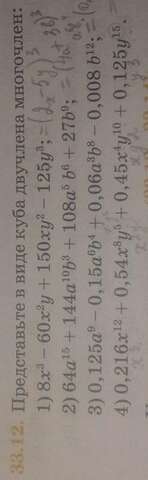 33.12. Представьте в виде куба двучлена многочлен:
1) 8x³ − 60x²y + 150xy² − 125y³; = (2x − 5y)³
2) 64a¹⁵ + 144a¹⁰b³ + 108a⁵b⁶ + 27b⁹;
3) 0,125a⁹ − 0,15a⁶b⁴ + 0,06a³b⁸ − 0,008b¹²;
4) 0,216x¹² + 0,54x⁸y⁵ + 0,45x⁴y¹⁰ + 0,125y¹⁵.